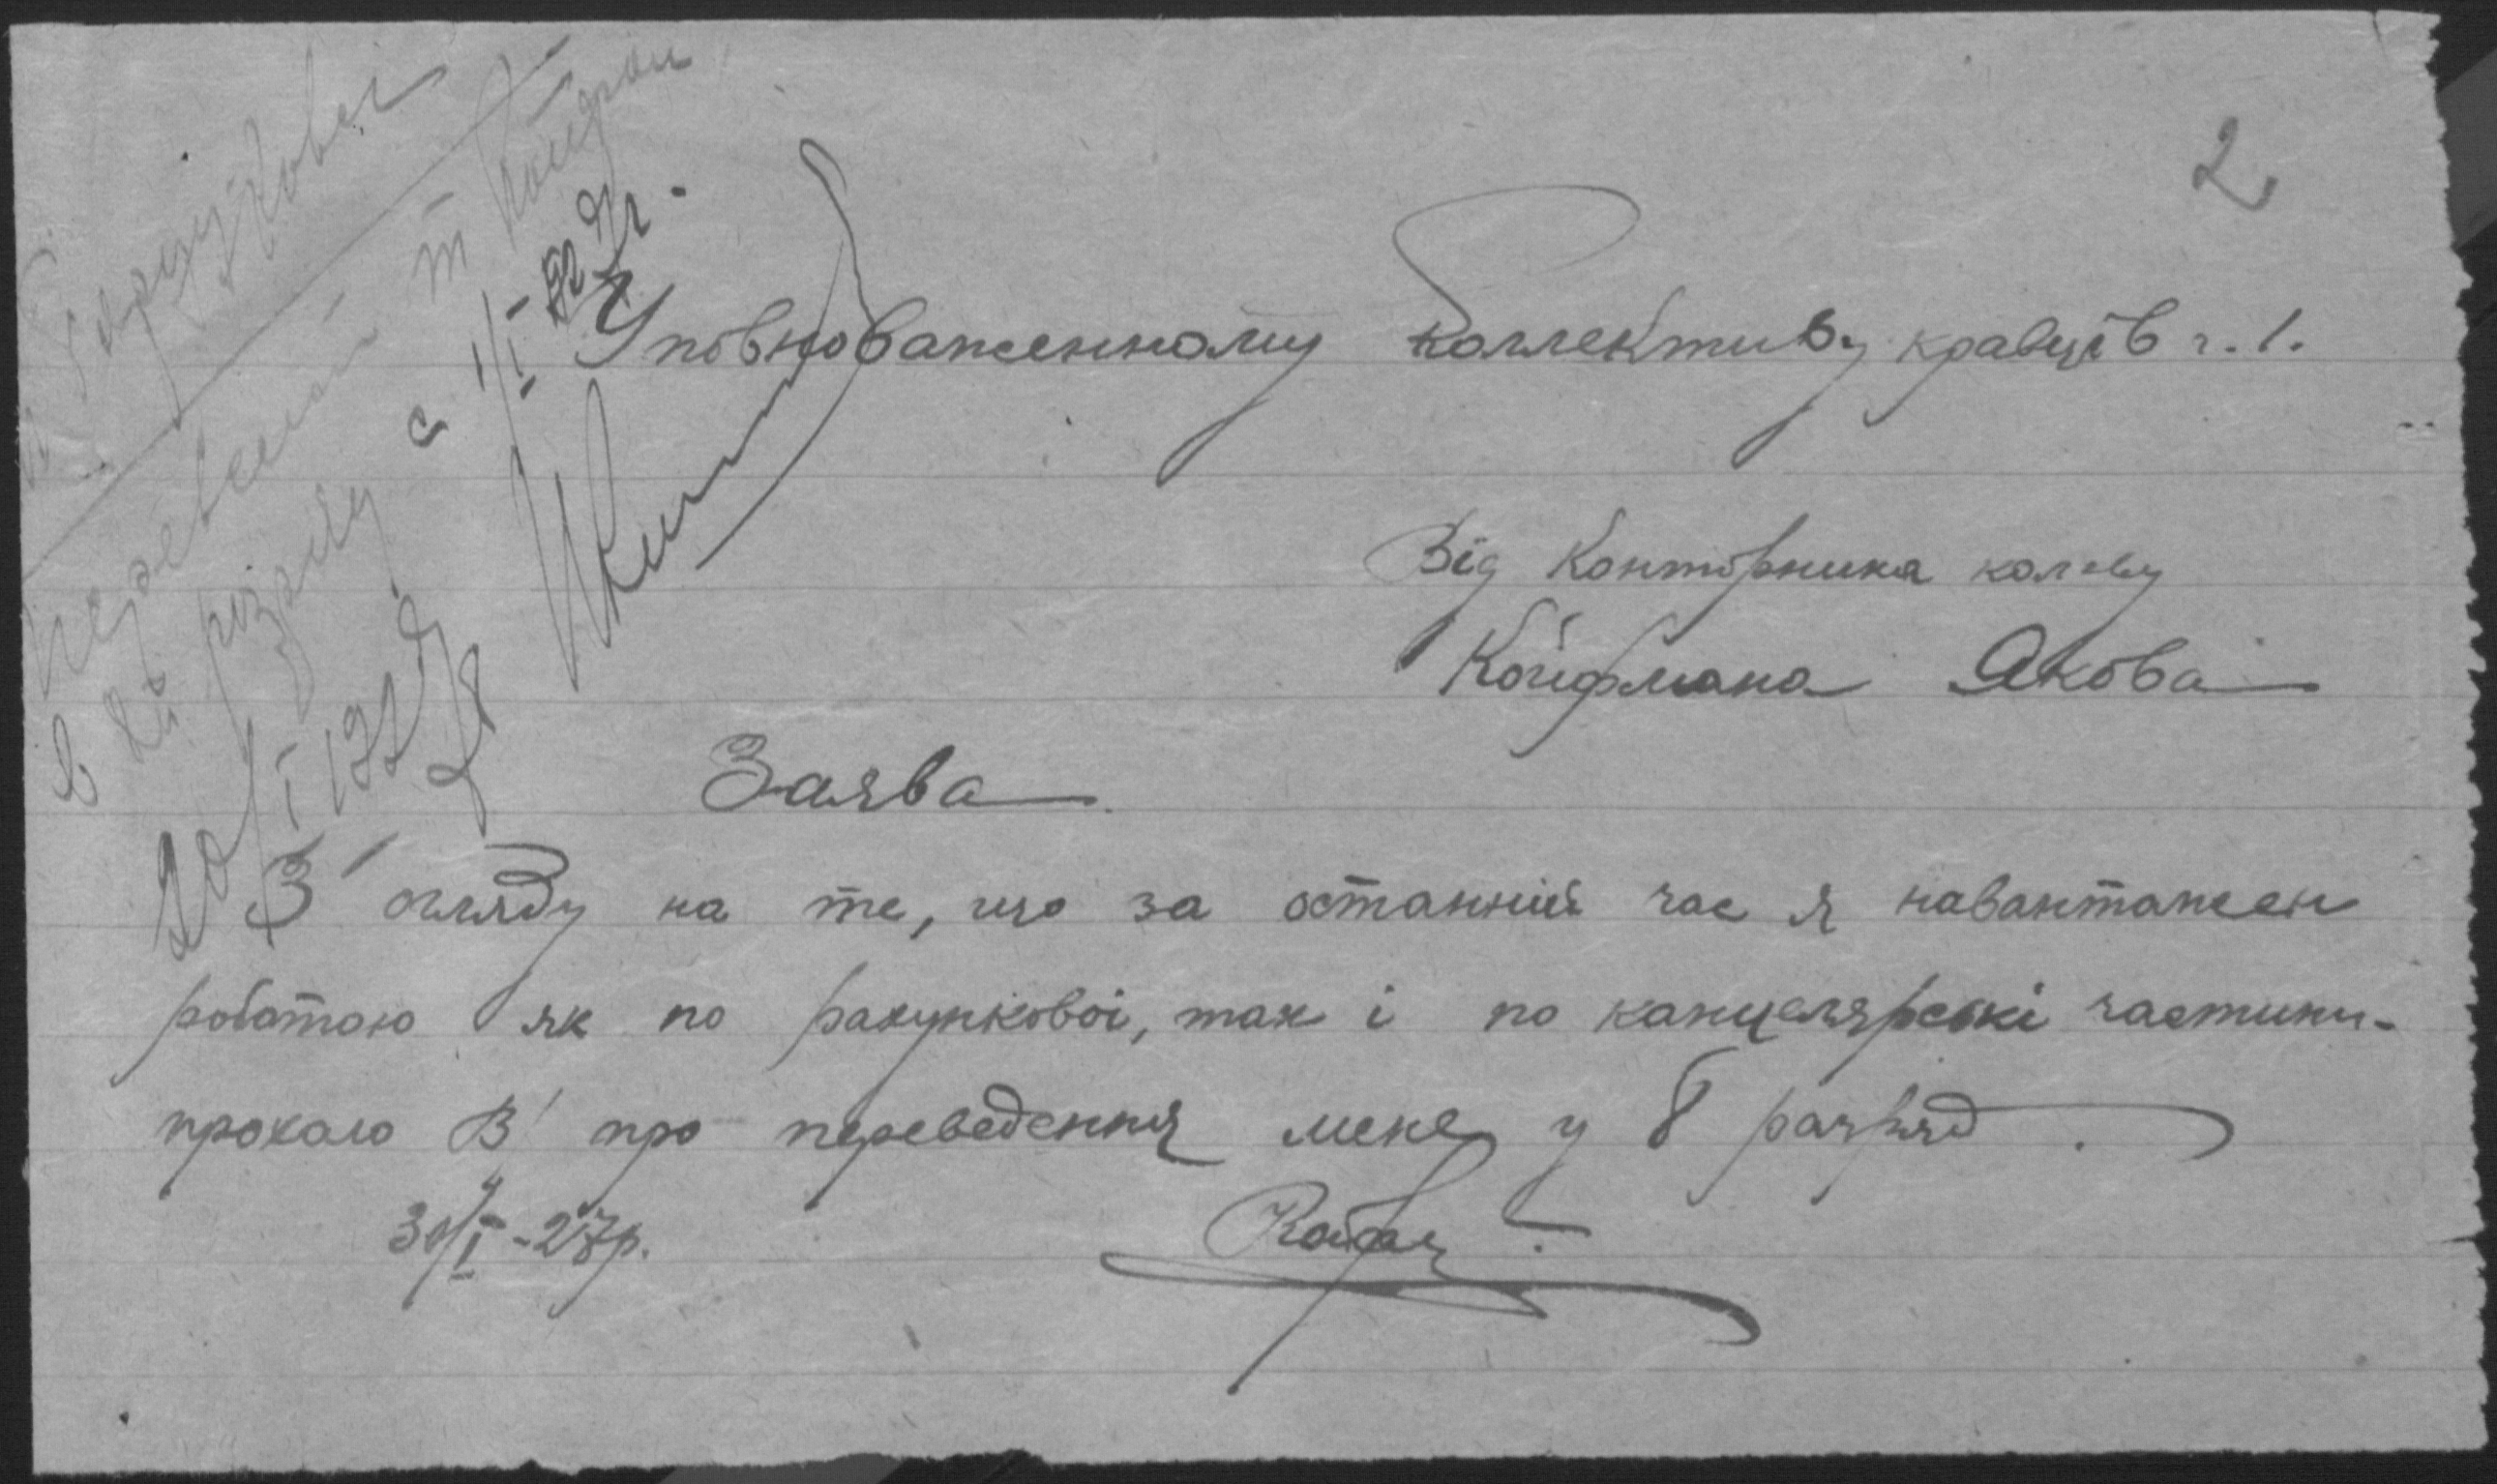 2
Уповноваженному коллективу кравців ч. 1.
Від Конторника кол-ву
Койфмана Якова
Заява
З огляду на те, що за останній час я навантажен
роботою як по рахункової, так і по канцелярскі частини-
прохаю В про переведення мене у 8 разряд.
30/I-27р.
т Койфман
в розряд с 1/I